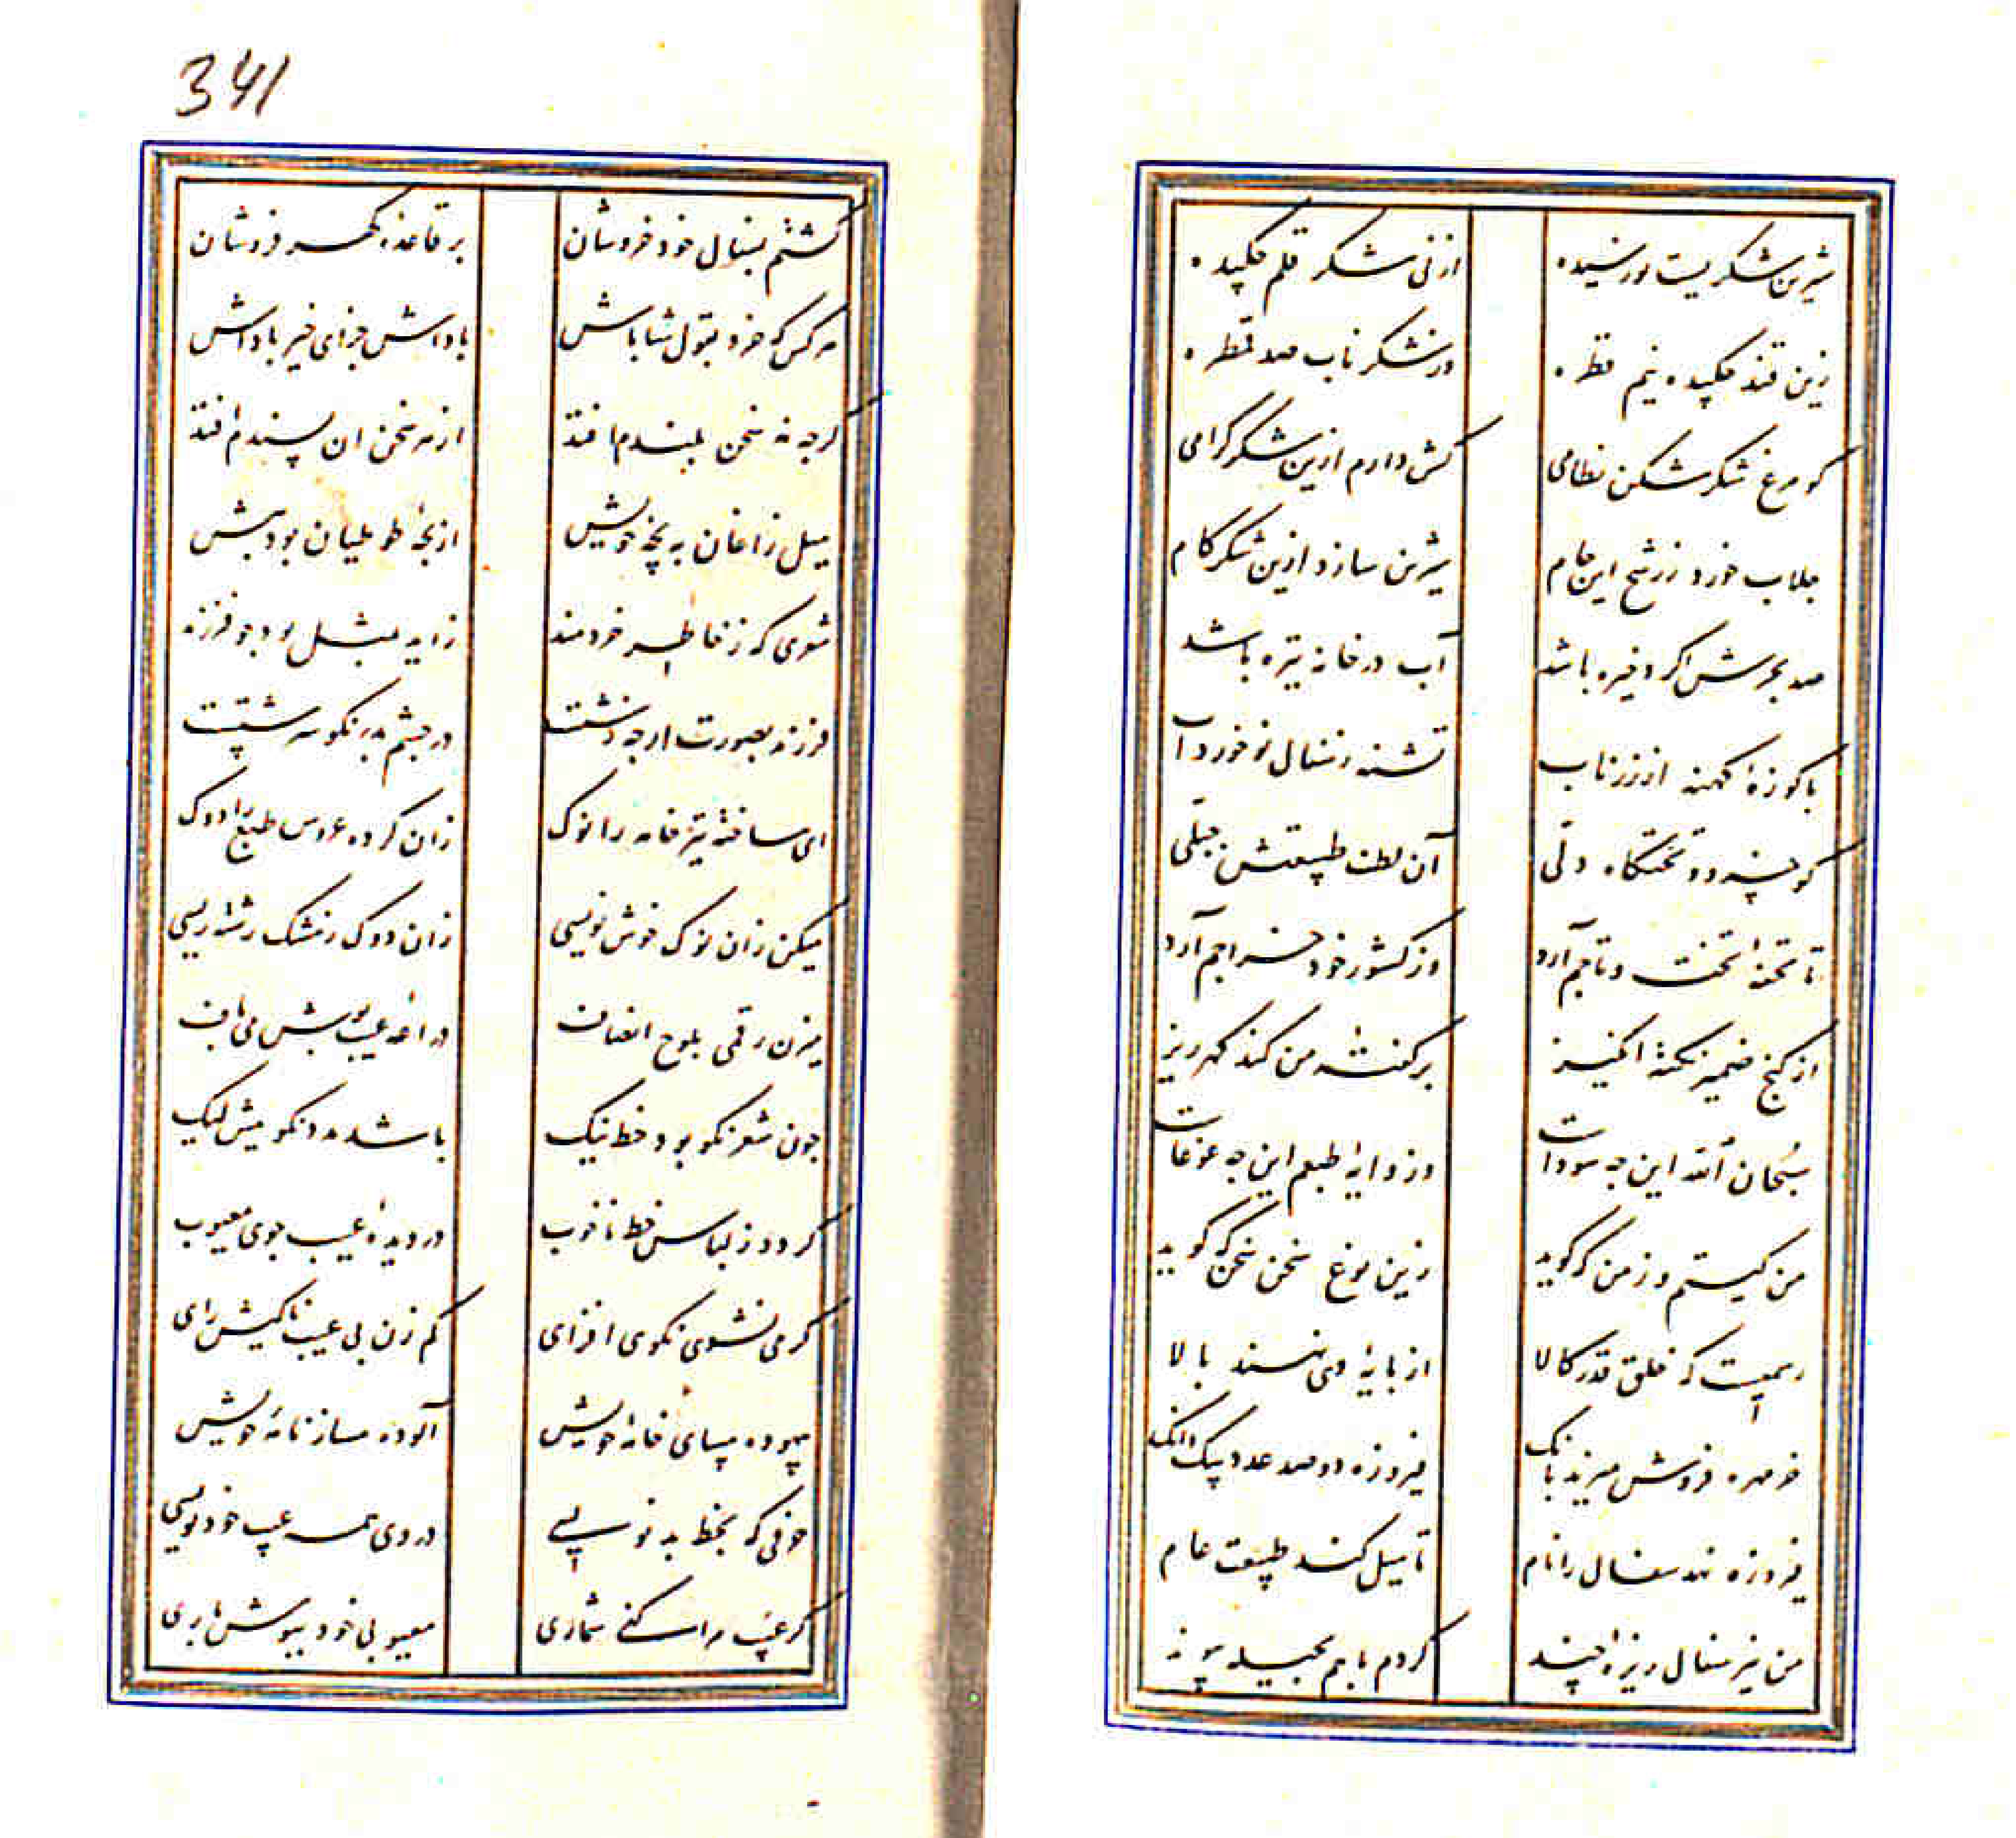 341
شیرین شکریست نورسیده
از نی شکر قلم چکیده
زین قند چکیده نیم قطره
وز شکر ناب صد قطره
کو مرغ شکر شکن نظامی
کش دارم ازین شکر گرامی
جلاب خورد ز رشح این جام
شیرین سازد ازین شکر کام
صد بحرش اگر ذخیره باشد
آب در خانه تیره باشد
با کوزهٔ کهنه از زر ناب
تشنه ز سفال نو خورد آب
کو خسرو تختگاه دلی
آن لطف طبیعتش جبلی
تا تحفه تخت و تاجم آرد
وز کشور خود خراجم آرد
از گنج ضمیر نکته انگیز
بر گفته من کند گهر ریز
سبحان الله این چه سوداست
وز دایهٔ طبعم این چه غوغاست
من کیستم و ز من که گوید
زین نوع سخن سخن که گوید
رسمیست که خلق قدر کالا
از پایهٔ وی نهند بالا
خر مهره فروش میزند بانک
فیروزه دو صد عدد بیک دانک
فیروزه نهد سفال را نام
تا میل کند طبیعت عام
من نیز سفال ریزهٔ چند
کردم با هم بحیله پیوند
گشتم بسفال خود خروشان
بر قاعده گهر فروشان
هر کس که خرد بقول شاباش
پاداش جزای خیر باداش
گرچه نه سخن بلندم افتد
از هر سخن آن پسندم افتد
میل زاغان به بچه خویش
از بچه طوطیان بود بیش
شعری که ز خاطر خردمند
زاید بمثل بود چو فرزند
فرزند بصورت ارچه زشتست
در چشم پدر نکو سرشتست
ای ساخته تیز خامه را نوک
زان کرده عروس طبع را دوک
میکن زان نوک خوش نویسی
زان دوک ز مشک رشته ریسی
میزن رقمی بلوح انصاف
دراعه عیب پوش می باف
چون شعر نکو بود خط نیک
باشد مدد نکوییش لیک
گردد ز لباس خط ناخوب
در دیدهٔ عیب جوی معیوب
گر می نشوی نکوی افزای
کم زن پی عیب ناکیش رای
بیهوده مسای خامهٔ خویش
آلوده مساز نامهٔ خویش
حرفی که بخط بد نویسی
در وی همه عیب خود نویسی
گر عیب مرا کنی شماری
معیوبی خود بپوش باری